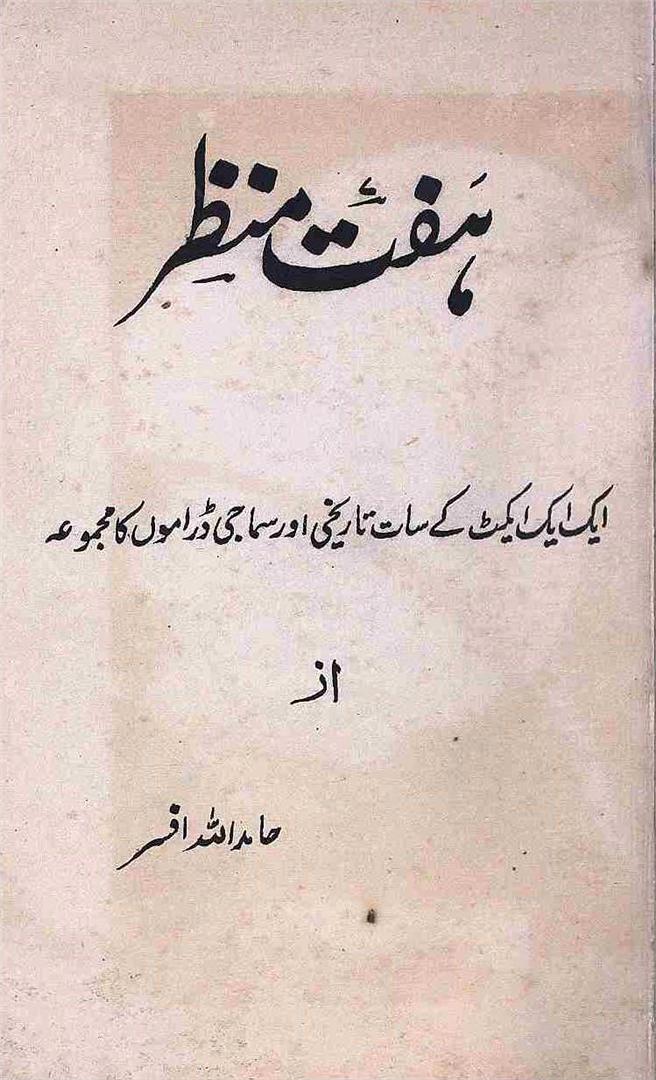 ہفت منظر
ایک ایک ایکٹ کے سات تاریخی اور سماجی ڈراموں کا مجموعہ
از
حامد اللہ افسر